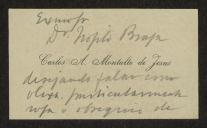 Exmo Sr
Dr. Teofilo Braga
Carlos A. Montalto de Jesus
desejando falar com
V. Exa. particularmente
roga o obsequio de